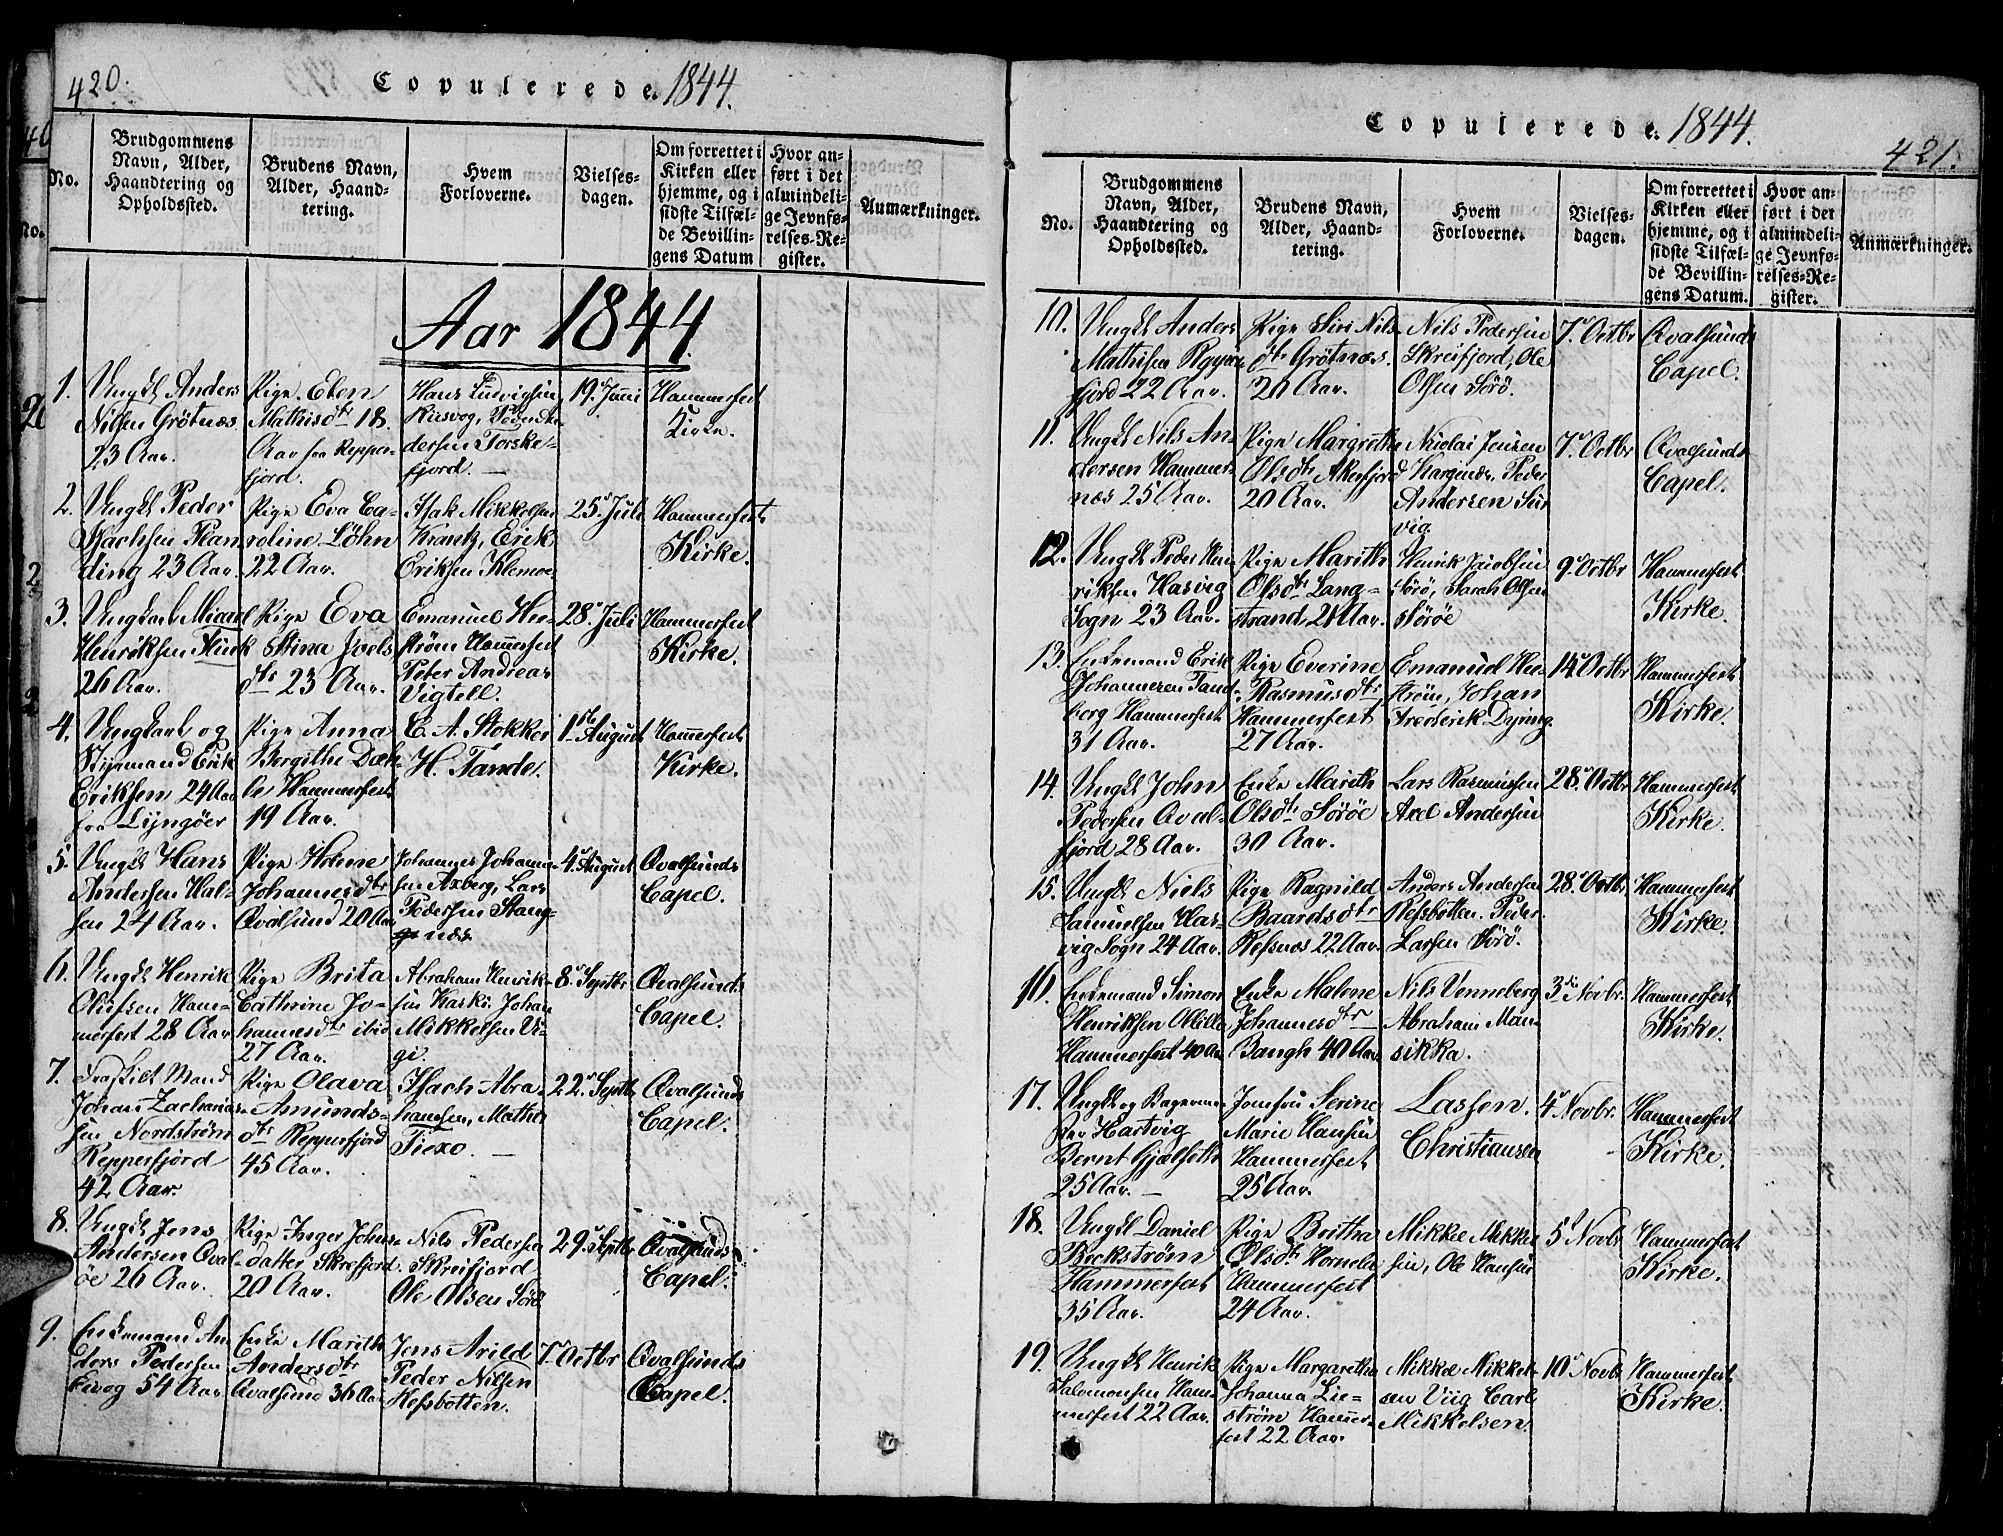 420.
Copulerede. 1844.
No.
Brudgommens Navn, Alder, Haandtering og Opholdssted.
Brudens Navn, Alder, Haandtering.
Hvem Forloverne.
Vielsesdagen.
Om forrettet i Kirken eller hjemme, og i sidste Tilfælde Bevillingens Datum
Hvor anført i det almindelige Jevnførelses-Register.
Anmærkninger.
Aar 1844.
1. Ungkl Anders Nilsen Grötnæs 23 Aar.
Pige Elen Mathisdtr 18 Aar fra Repperfjord.
Hans Ludvigsen Peder Andersen Torskefjord.
19. Juni
Hammerfest Kirke.
2. Ungkl Peder Isachsen Planding 23 Aar.
Pige Eva Caroline Löhn 22 Aar.
Isak Mikkelsen Krantz, Erik Eriksen Klemoe
25. Juli
Hammerfest Kirke.
3. Ungkarl Micael Henriksen Huuk 26 Aar.
Pige Eva Stina Joelsdtr 23 Aar.
Emanuel Heeström Hammerfest Peter Andreas Vigtell.
28. Juli
Hammerfest Kirke.
4. Ungkarl og Styrmand Erik Eriksen 24 Aar fra Lyngöer
Pige Anna Bergithe Dahle Hammerfest 19 Aar.
C. A. Stokker H. Tande.
1ste August
Hammerfest Kirke.
5. Ungkl Hans Andersen Halsen 24 Aar.
Pige Johannesdtr Qvalsund 20 Aar
Johannes Johannesen Axberg, Lars Pedersen Stangnæs
4. August
Qvalsunds Capel.
6. Ungkl Henrik Olufsen Hammerfest 28 Aar
Pige Brita Cathrine Johannesdtr ibid 27 Aar.
Abraham Henriksen Kaskö. Johan Mikkelsen
8. Septbr
Qvalsunds Capel.
7. Fraskilt Mand Johan Zachariassen Nordström Repperfjord 42 Aar.
Pige Olava Amundsdtr Repperfjord 45 Aar.
Isach Abrahamsen, Mathis Fiexo.
22. Septbr
Qvalsunds Capel.
8. Ungkl Jens Andersen Qvalöe 26 Aar.
Pige Inger Johnsdatter Skreifjord 20 Aar.
Nils Pedersen Skreifjord Ole Olsen Sörö
29. Septbr
Qvalsunds Capel.
9. Enkemand Anders Pedersen 54 Aar
Enke Marith Andersdtr Qvalsund 36 Aar
Jens Arild Peder Nilsen Refsbotten.
7. Octbr
Qvalsunds Capel.
Copulerede. 1844.
421.
No.
Brudgommens Navn, Alder, Haandtering og Opholdssted.
Brudens Navn, Alder, Haandtering.
Hvem Forloverne.
Vielsesdagen.
Om forrettet i Kirken eller hjemme, og i sidste Tilfælde Bevillingens Datum.
Hvor anført i det almindelige Jevnførelses-Register.
Anmærkninger.
10. Ungkl Anders Mathisen 22 Aar.
Pige Siri Nilsdtr Grötnæs. 20 Aar.
Nils Pedersen Skreifjord, Ole Olsen Sörö.
7. Octbr
Qvalsunds Capel.
11. Ungkl Nils Andersen Hammernæs 25 Aar.
Pige Margrethe Olsdtr Akerfjord 20 Aar.
Nicolai Jensen Peder Andersen
7. Octbr
Qvalsunds Capel.
12. Ungkl Peder Henriksen Hasvig Sogn 23 Aar.
Pige Marith Olsdtr Langstrand 21 Aar.
Henrik Jacobsen Sörö, Sarah Olsen Söröe
9. Octbr
Hammerfest Kirke.
13. Enkemand Erik Johannesen Tandberg Hammerfest 31 Aar.
Pige Everine Rasmusdtr Hammerfest 27 Aar.
Emanuel Heeström, Johan Frederik Dyring.
14. Octbr
Hammerfest Kirke.
14. Ungkl John Pedersen Qvalfjord 28 Aar.
Enke Marith Olsdtr Söröe 30 Aar.
Lars Rasmussen Axel Andersen
28. Octbr
Hammerfest Kirke.
15. Ungkl Niels Samuelsen Hasvig Sogn 24 Aar.
Pige Ragnild Baardsdtr Refsnæs 22 Aar.
Anders Andersen Refsbotten. Peder Larsen Sörö.
28. Octbr
Hammerfest Kirke.
16. Enkemand Simon Henriksen Ollilla Hammerfest 40 Aar
Enke Malene Johannesdtr Bangh 40 Aar.
Nils Venneberg Abraham Mansikka.
3die Novbr.
Hammerfest Kirke.
17. Ungkl og Bagermester Hartvig Bernt Gjælseth 25 Aar.
Jomfru Serine Marie Hansen Hammerfest 25 Aar.
Lassen. Christiansen
4. Novbr.
Hammerfest Kirke.
18. Ungkl Daniel Beckström Hammerfest 35 Aar.
Pige Beritha Olsdtr Hammerfest 24 Aar.
Mikkel Mikkelsen, Ole Hansen
5. Novbr
Hammerfest Kirke.
19. Ungkl Henrik Salomonsen Hammerfest 22 Aar.
Pige Margaretha Johanna Lieström Hammerfest 22 Aar.
Mikkel Mikkelsen Viig Carl Mikkelsen.
10. Novbr
Hammerfest Kirke.